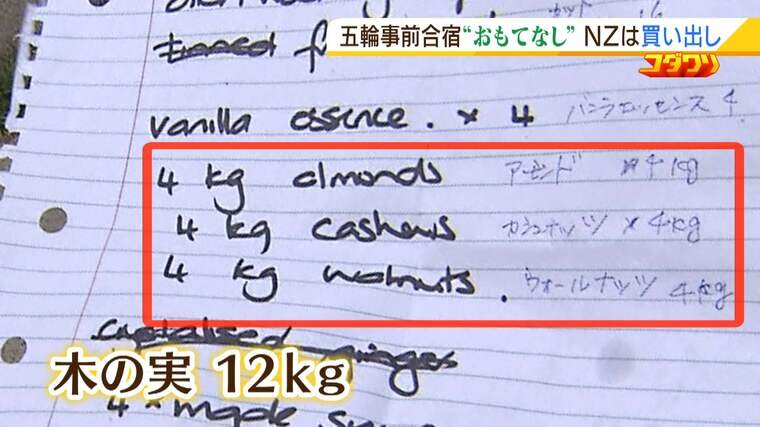 五輪事前合宿“おもてなし” NZは買い出し
コダワリ
vanilla essence. × 4 バニラエッセンス 4
4 kg almonds アーモンド × 4 kg
4 kg cashews カシュナッツ × 4kg
4 kg walnuts. ウォールナッツ 4kg
木の実 12kg
4 × maple